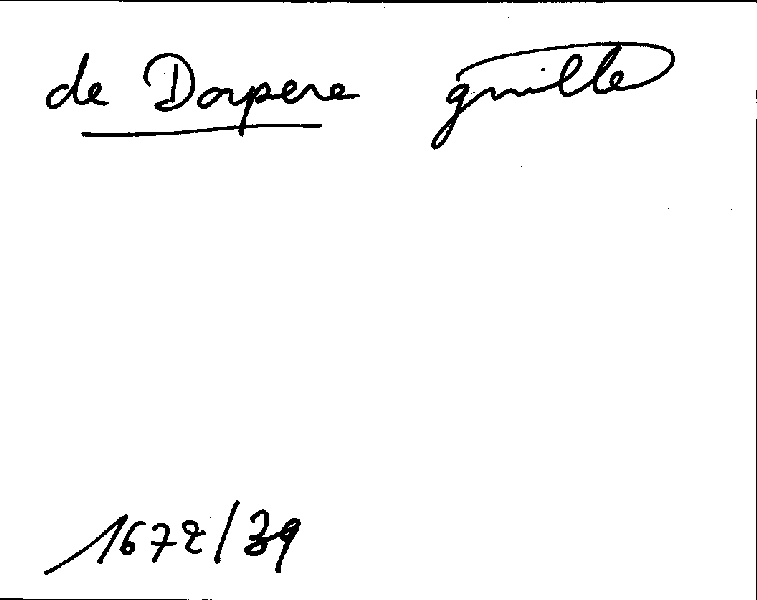 de Dorpere guille
1672/39